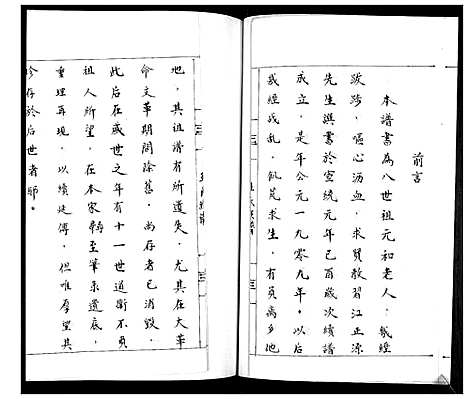 前言
本譜書為八世祖元和老人，幾經
跋涉，嘔心沥血，求賢教習江正源
先生撰書於宣統元年己酉歲次續譜
成立，是年公元一九零九年。以后
幾經戎乱，飢荒求生，有負离乡他
地，其祖譜有所遺失，尤其在大革
命文革期間除舊，尚存者已消毀，
此后在盛世之年有十一世道衛不負
祖人所望，在本家尋至筆录遺底，
重理再現，以續延傳，但唯厚望其
珍存於后世者耶。